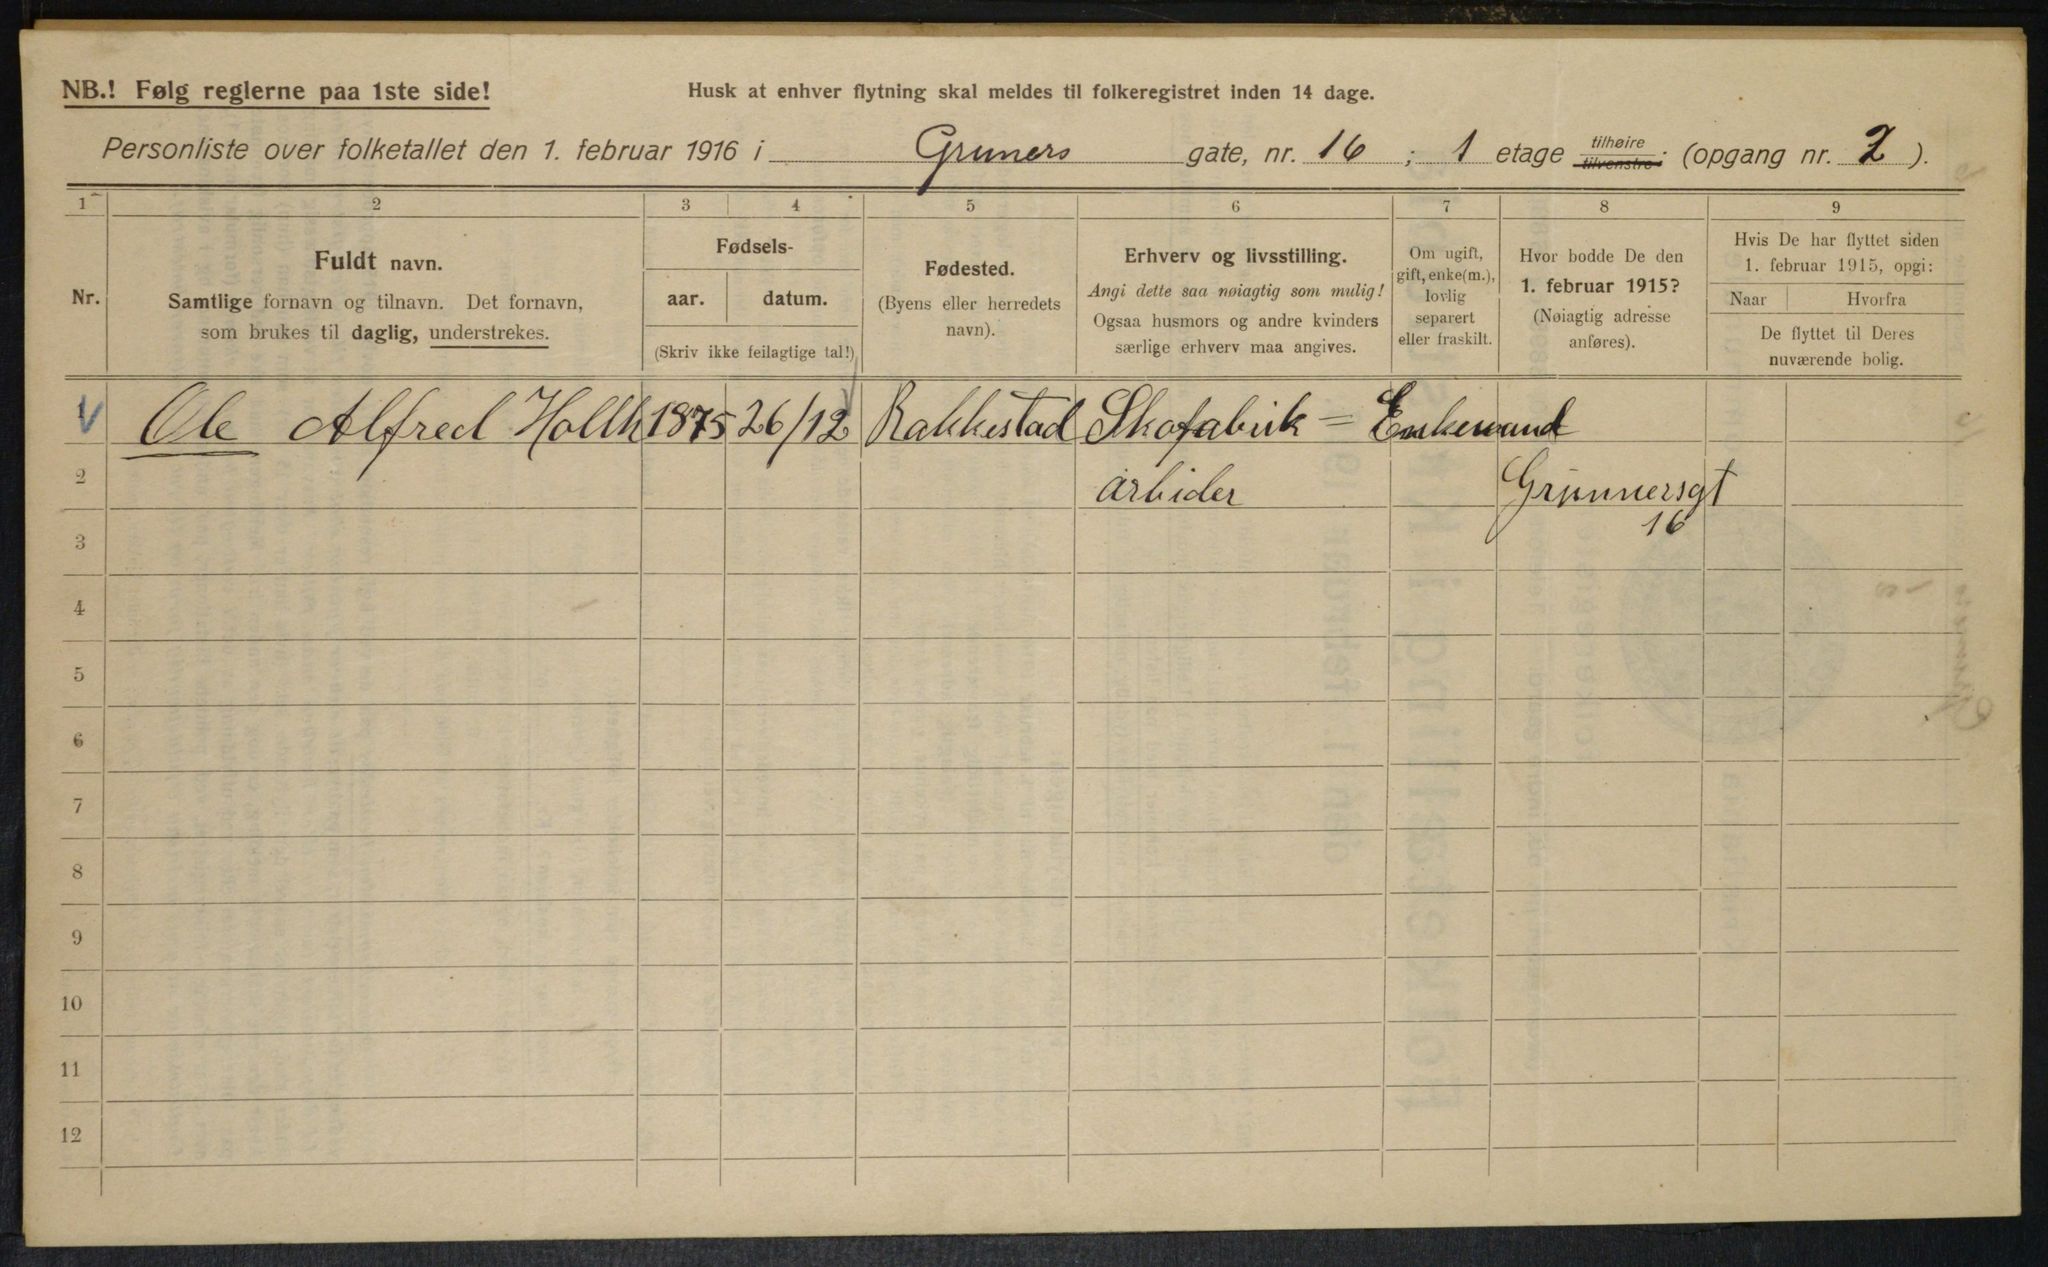 NB.! Følg reglerne paa 1ste side!
Husk at enhver flytning skal meldes til folkeregistret inden 14 dage.
Personliste over folketallet den 1. februar 1916 i Gruners gate, nr. 16 ; 1 etage tilhøire tilvenstre. (opgang nr. 2 ).
1 2 3 4 5 6 7 8 9
Nr.
Fuldt navn.
Samtlige fornavn og tilnavn. Det fornavn,
som brukes til daglig, understrekes.
Fødsels-
aar. datum.
(Skriv ikke feilagtige tal!)
Fødested.
(Byens eller herredets
navn).
Erhverv og livsstilling.
Angi dette saa nøiagtig som mulig!
Ogsaa husmors og andre kvinders
særlige erhverv maa angives.
Om ugift,
gift, enke(m.),
lovlig
separert
eller fraskilt.
Hvor bodde De den
1. februar 1915?
(Nøiagtig adresse
anføres).
Hvis De har flyttet siden
1. februar 1915, opgi:
Naar Hvorfra
De flyttet til Deres
nuværende bolig.
1 Ole Alfred 1875 26/12 Rakkestad Skofabrik= Enkemand
2 arbider Grünnersgt
16
3
4
5
6
7
8
9
10
11
12